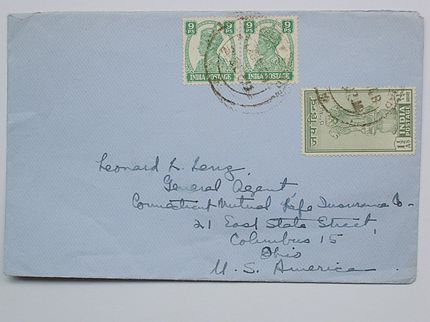 9 9
PS PS
INDIA POSTAGE INDIA POSTAGE
जय हिन्द
INDIA
POSTAGE
1½
AS
Leonard L.
General Agent,
Connecticut Mutual Life Insurance Co-
21 East State Street,
Columbus 15
Ohio
U. S. America